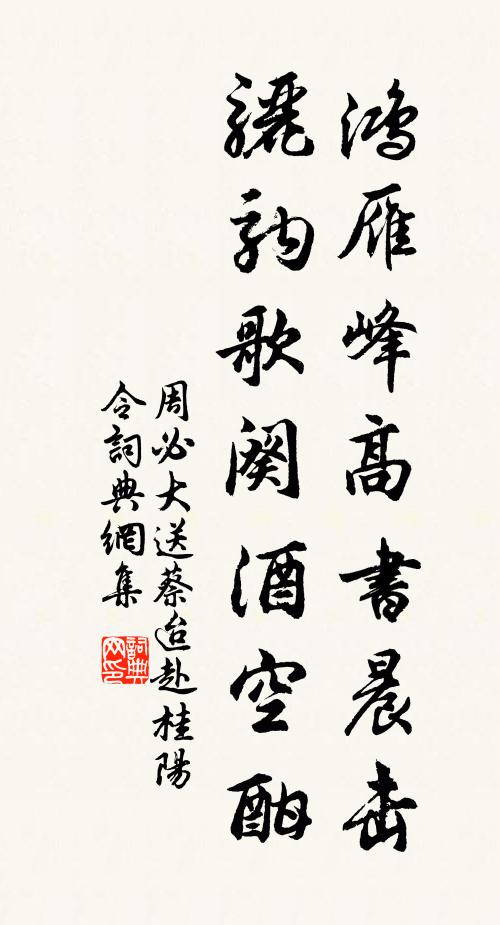 鴻雁峰高書晨
驪駒歌闋酒空酣
周必大送蔡迨赴桂陽
令詞典網集
詞典
网印